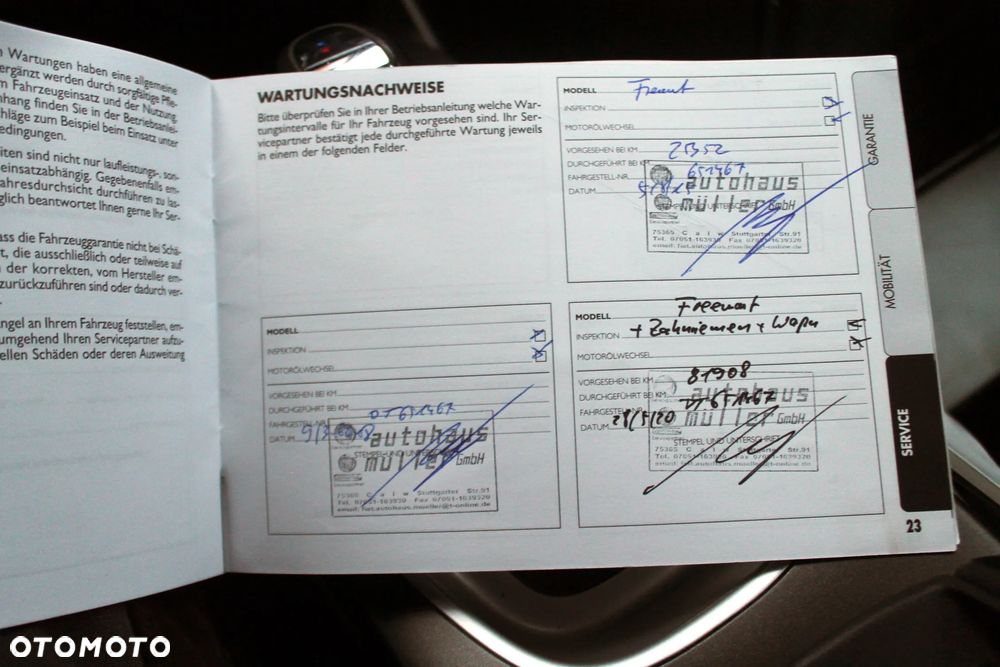 n Wartungen haben eine allgemeine
ergänzt werden durch sorgfältige Pfle-
m Fahrzeugeinsatz und der Nutzung.
nhang finden Sie in der Betriebsanlei-
hläge zum Beispiel beim Einsatz unter
edingungen.
iten sind nicht nur laufleistungs-, son-
einsatzabhängig. Gegebenenfalls em-
ahresdurchsicht durchführen zu las-
glich beantwortet Ihnen gerne Ihr Ser-
ass die Fahrzeuggarantie nicht bei Schä-
t, die ausschließlich oder teilweise auf
n der korrekten, vom Hersteller em-
zurückzuführen sind oder dadurch ver-
ngel an Ihrem Fahrzeug feststellen, em-
umgehend Ihren Servicepartner aufzu-
ellen Schäden oder deren Ausweitung
WARTUNGSNACHWEISE
Bitte überprüfen Sie in Ihrer Betriebsanleitung welche War-
tungsintervalle für Ihr Fahrzeug vorgesehen sind. Ihr Ser-
vicepartner bestätigt jede durchgeführte Wartung jeweils
in einem der folgenden Felder.
MODELL Freemont
INSPEKTION
MOTORÖLWECHSEL
VORGESEHEN BEI KM
DURCHGEFÜHRT BEI KM
FAHRGESTELL-NR. 651467
DATUM
autohaus
müller GmbH
STEMPEL UND UNTERSCHRIFT
75365 Calw Stuttgarter Str.91
Tel. 07051-163930 Fax 07051-1639320
email: fiat.autohaus.mueller@t-online.de
MODELL
INSPEKTION
MOTORÖLWECHSEL
VORGESEHEN BEI KM
DURCHGEFÜHRT BEI KM
FAHRGESTELL-NR. DT651467
DATUM
autohaus
müller GmbH
STEMPEL UND UNTERSCHRIFT
75365 Calw Stuttgarter Str.91
Tel. 07051-163930 Fax 07051-1639320
email: fiat.autohaus.mueller@t-online.de
MODELL Freemont
INSPEKTION + Zahnriemen + Wapu
MOTORÖLWECHSEL
VORGESEHEN BEI KM
DURCHGEFÜHRT BEI KM 81908
FAHRGESTELL-NR. DT651467
DATUM 28/5/20
autohaus
müller GmbH
STEMPEL UND UNTERSCHRIFT
75365 Calw Stuttgarter Str.91
Tel. 07051-163930 Fax 07051-1639320
email: fiat.autohaus.mueller@t-online.de
GARANTIE
MOBILITÄT
SERVICE
23
OTOMOTO